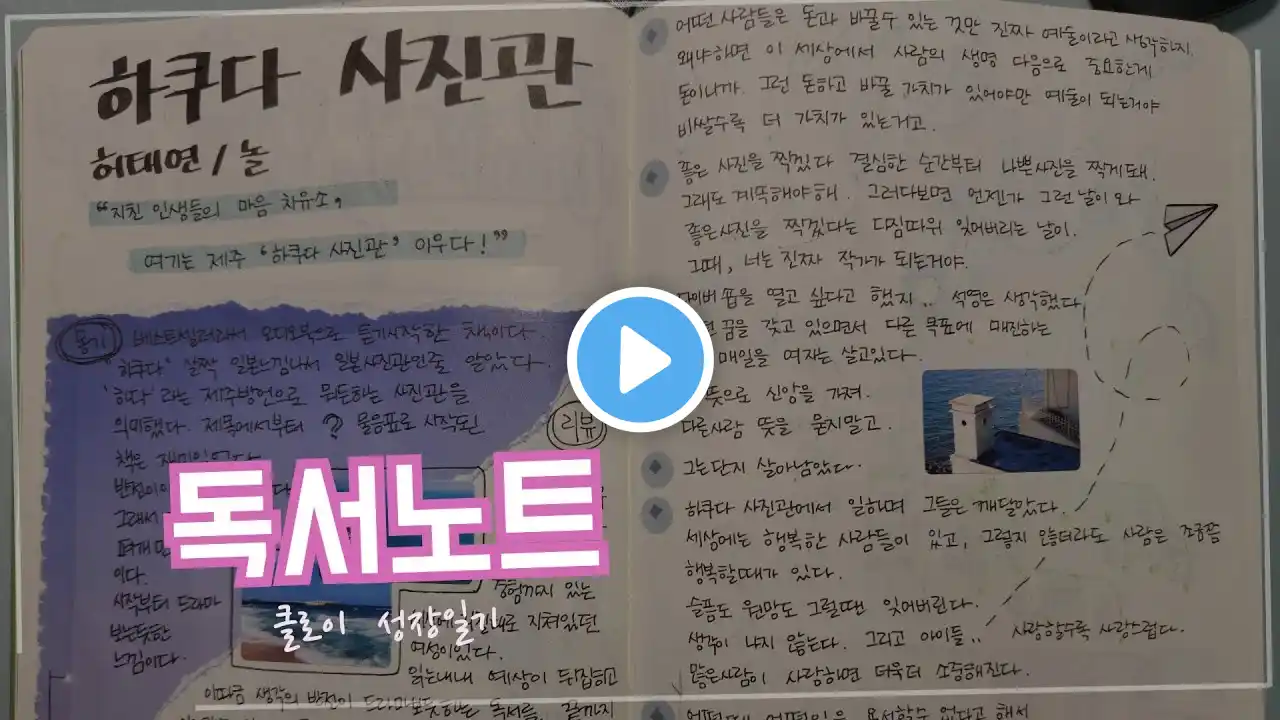 하쿠다 사진관
허태연 / 놀
"지친 인생들의 마음 치유소,
여기는 제주 '하쿠다 사진관' 이우다!"
동기
베스트셀러라서 오디오북으로 듣기시작한 책이다.
"하쿠다" 살짝 일본느낌나서 일본사진관인줄 알았다.
'하다'라는 제주방언으로 뭐든하는 사진관을
의미했다. 제목에서부터 ? 물음표로 시작된
책은
그래서
이다.
시작부터 드라마
보는듯한
느낌이다.
리뷰
독서노트
클로이 성장일기
경험까지 있는
지쳐있던
여성이었다.
읽는내내 예상이 뒤집히고
이따금 생각의 반전이 드라마보듯하는 독서를, 끝까지
어떤 사람들은 돈과 바꿀수 있는 것만 진짜 예술이라고 생각하지.
왜냐하면 이 세상에서 사람의 생명 다음으로 중요한게
돈이니까. 그런 돈하고 바꿀 가치가 있어야만 예술이 되는거야
비쌀수록 더 가치가 있는거고.
좋은 사진을 찍겠다 결심한 순간부터 나쁜사진을 찍게돼.
그래도 계속해야해. 그러다보면 언젠가 그런 날이 와
좋은사진을 찍겠다는 다짐따위 잊어버리는 날이.
그때, 너는 진짜 작가가 되는거야.
숍을 열고 싶다고 했지.. 석영은 생각했다
꿈을 갖고 있으면서 다른 목표에 매진하는
매일을 여자는 살고있다.
뜻으로 신앙을 가져.
다른사람 뜻을 묻지말고.
그는단지 살아남았다.
하쿠다 사진관에서 일하며 그들은 깨달았다.
세상에는 행복한 사람들이 있고, 그렇지 않더라도 사람은 조금쯤
행복할때가 있다.
슬픔도 원망도 그럴땐 잊어버린다.
생각이 나지 않는다. 그리고 아이들.. 사랑할수록 사랑스럽다.
많은사람이 사랑하면 더욱더 소중해진다.
어떤때 어떤일은 용서할수 없다고 해서